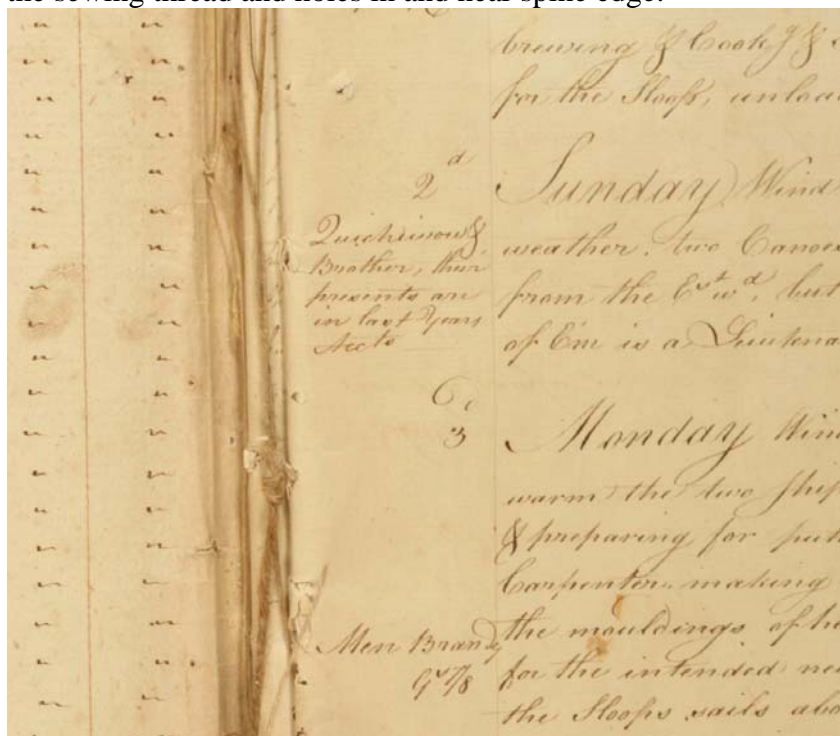 the sewing thread and holes in and near spine edge.
brewing & Cook g &
for the Sloops, unloa
2 d
Sunday Wind
Brother, their
presents are
in last Years
Accts
weather. two Canoes
from the Est wd, but
of Em is a Lieutena
3
Monday Win
warm the two Ship
& preparing for put
Carpenter making
Men Brandy
the mouldings of he
for the intended ne
the Sloops sails abo